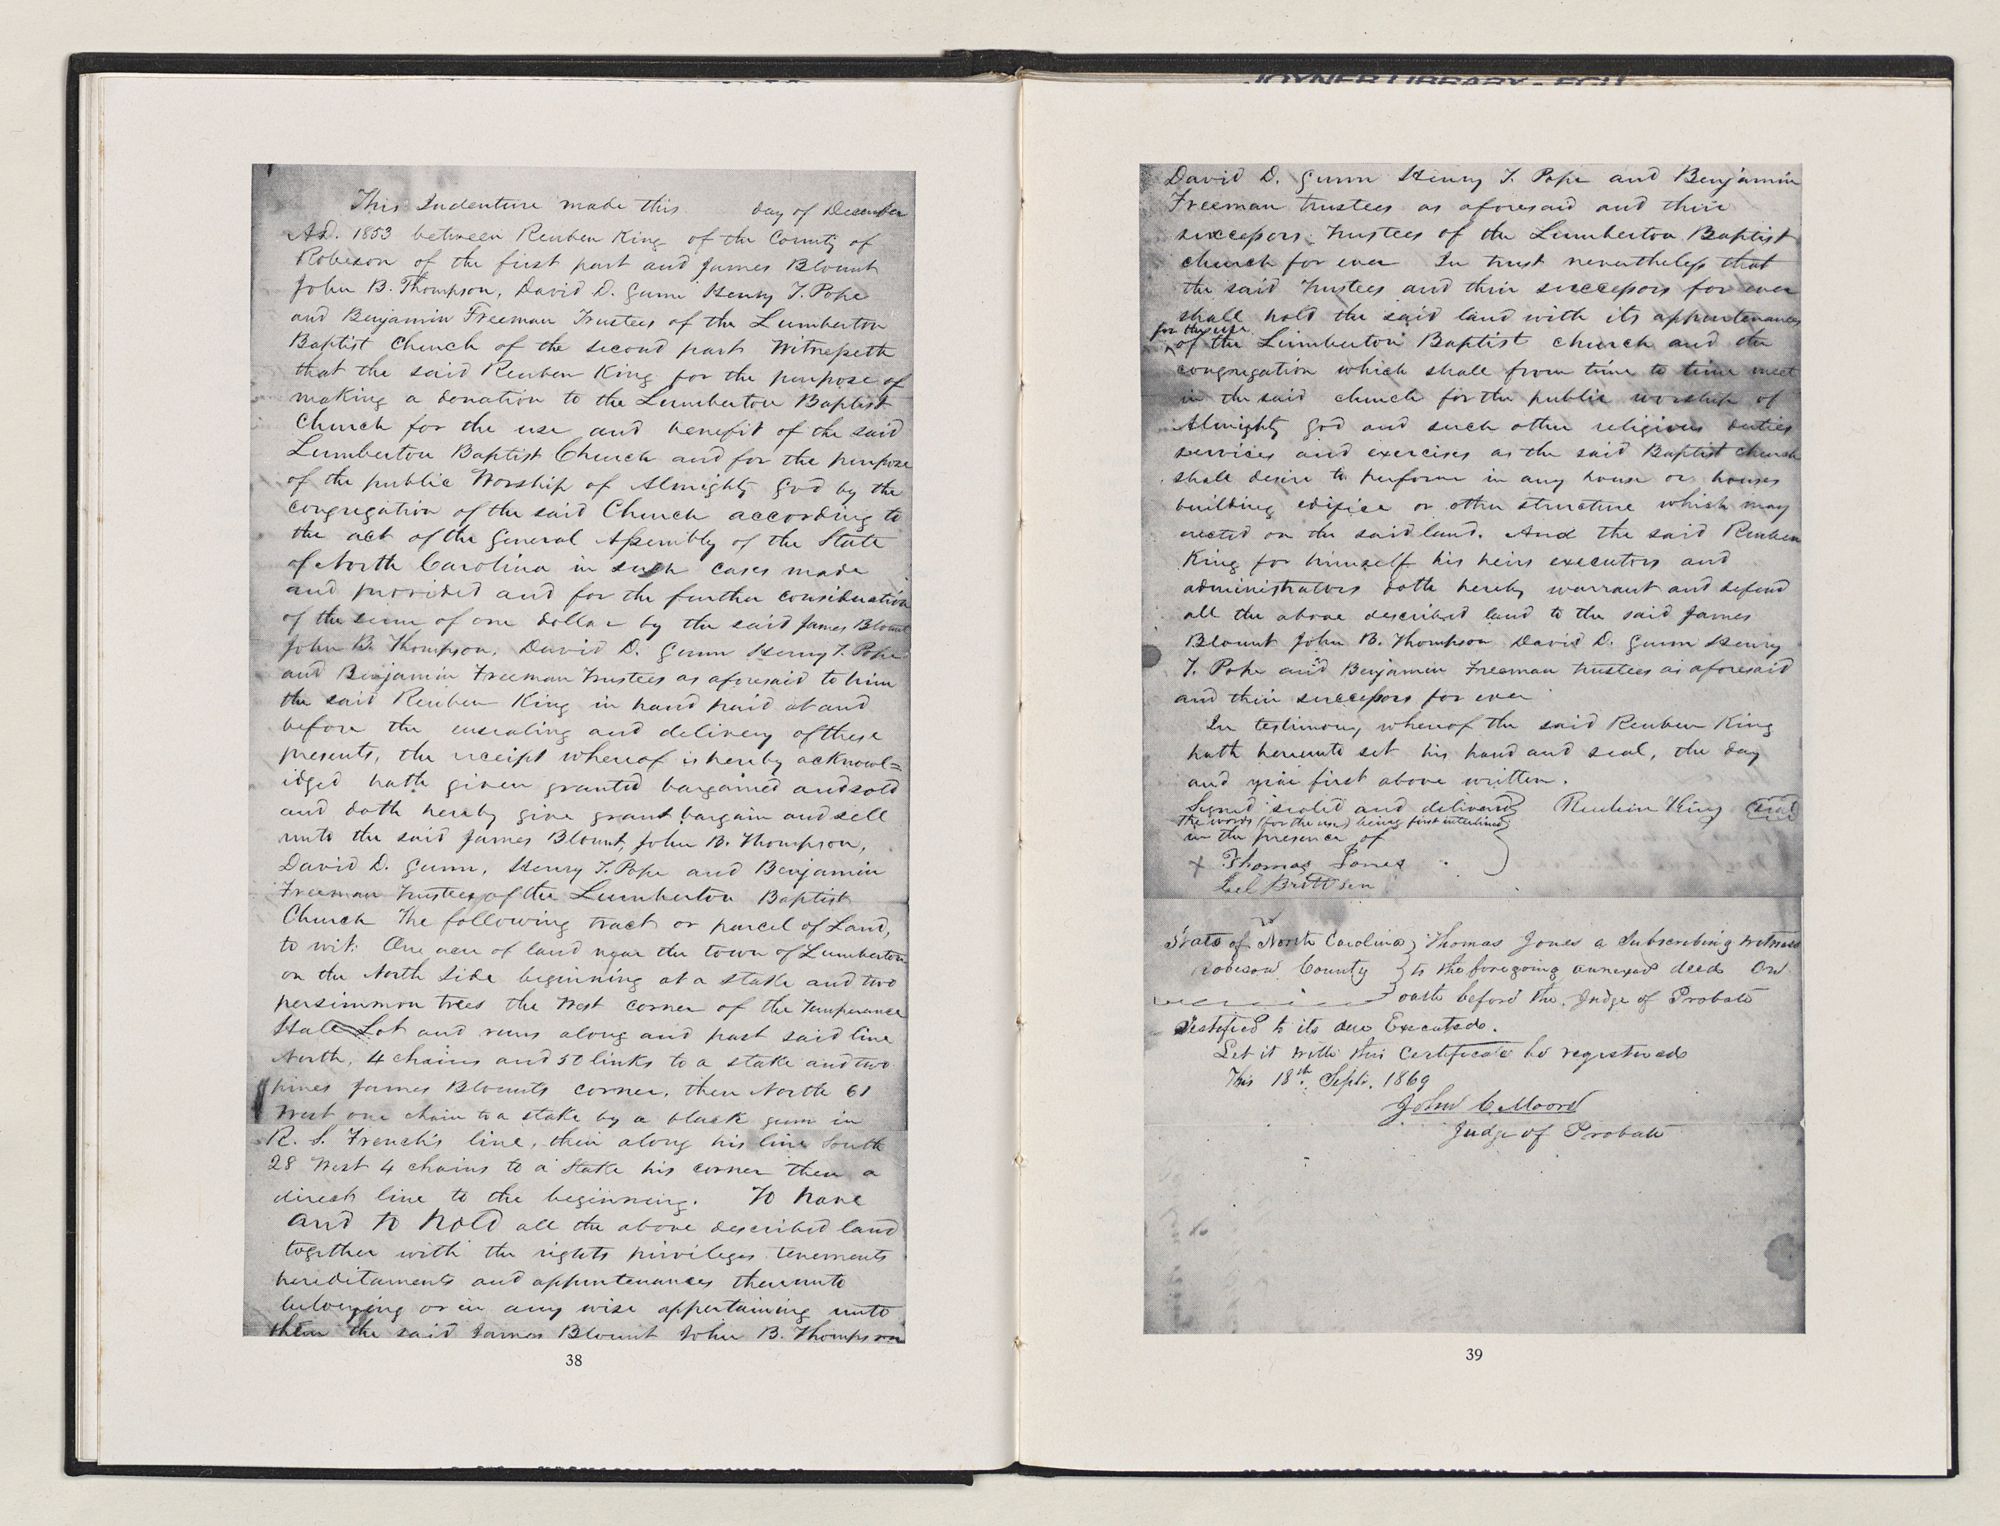 This Indenture made this day of December
AD. 1853 between Reuben King of the County of
Robeson of the first part and James Blount
John B. Thompson, David D. Gunn Henry T. Pope
and Benjamin Freeman Trustees of the Lumberton
Baptist Church of the second part Witnesseth
that the said Reuben King for the purpose of
making a donation to the Lumberton Baptist
Church for the use and benefit of the said
Lumberton Baptist Church and for the purpose
of the public Worship of Almighty God by the
congregation of the said Church according to
the act of the General Assembly of the State
of North Carolina in such cases made
and provided and for the further consideration
of the sum of one dollar by the said James Blount
John B. Thompson, David D. Gunn Henry T. Pope
and Benjamin Freeman Trustees as aforesaid to him
the said Reuben King in hand paid at and
before the ensealing and delivery of these
presents, the receipt whereof is hereby acknowl=
idged hath given granted bargained and sold
and doth hereby give grant bargain and sell
unto the said James Blount, John B. Thompson,
David D. Gunn, Henry T. Pope and Benjamin
Freeman Trustees of the Lumberton Baptist
Church The following tract or parcel of Land,
to wit: One acre of land near the town of Lumberton
on the North Side beginning at a stake and two
persimmon trees the West corner of the Temperance
Hall Lot and runs along and past said line
North, 4 chains and 50 links to a stake and two
pines James Blounts corner, then North 61
West one chain to a stake by a black gum in
R. S. French's line, then along his line South
28 West 4 chains to a Stake his corner then a
direct line to the beginning. To have
and to hold all the above described land
together with the rights privileges tenements
hereditaments and appurtenances thereunto
belonging or in any wise appertaining unto
them the said James Blount John B. Thompson
38
JOYNER LIBRARY - ECU
David D. Gunn Henry T. Pope and Benjamin
Freeman trustees as aforesaid and their
successors Trustees of the Lumberton Baptist
church for ever In trust nevertheless that
the said Trustees and their successors for ever
shall hold the said land with its appurtenances
for the use
of the Lumberton Baptist church and the
congregation which shall from time to time meet
in the said church for the public worship of
Almighty God and such other religious duties
services and exercises as the said Baptist church
shall desire to perform in any house or houses
building edifice or other structure which may
erected on the said land. And the said Reuben
King for himself his heirs executors and
administrators doth hereby warrant and defend
all the above described land to the said James
Blount John B. Thompson David D. Gunn Henry
T. Pope and Benjamin Freeman trustees as aforesaid
and their successors for ever
In testimony whereof the said Reuben King
hath hereunto set his hand and seal, the day
and year first above written.
Signed sealed and delivered Reuben King seal
the words (for the use) being first interlined
in the presence of
Thomas Jones
State of North Carolina Thomas Jones a Subscribing witness
Robeson County to the foregoing annexed deed On
oath before the Judge of Probate
Testified to its due Executed.
Let it with this Certificate be registered
This 18th Sept. 1869
John C Moore
Judge of Probate
39